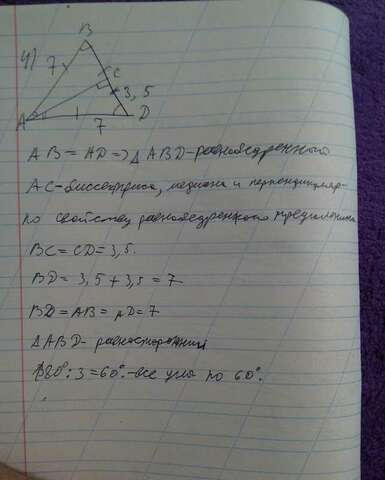 4)
B
7
C
3,5
A
7
D
AB = AD => △ABD - равнобедренный
AC - биссектриса, медиана и перпендикуляр -
по свойству равнобедренного треугольника
BC = CD = 3,5.
BD = 3,5 + 3,5 = 7
BD = AB = AD = 7
△ABD - равносторонний
180° : 3 = 60° - все углы по 60°.